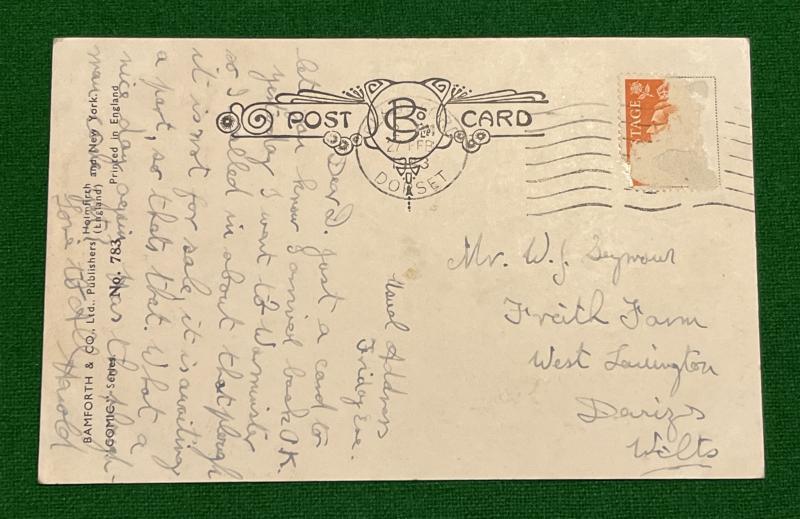 POST CARD
B & Co Ltd
27 FEB
DORSET
TAGE
Usual Address
Friday Eve.
Dear D. Just a card to
let you know I arrived back O.K.
yesterday I went to Warminster
so I called in about that plough
it is not for sale, it is awaiting
a part, so thats that. What a
nice day
Love to all Harold
Mr. W. J. Seymour
Freith Farm
West Lavington
Devizes
Wilts
BAMFORTH & CO., Ltd., Publishers (England) Holmfirth and New York.
"COMIC" Series No. 783 Printed in England